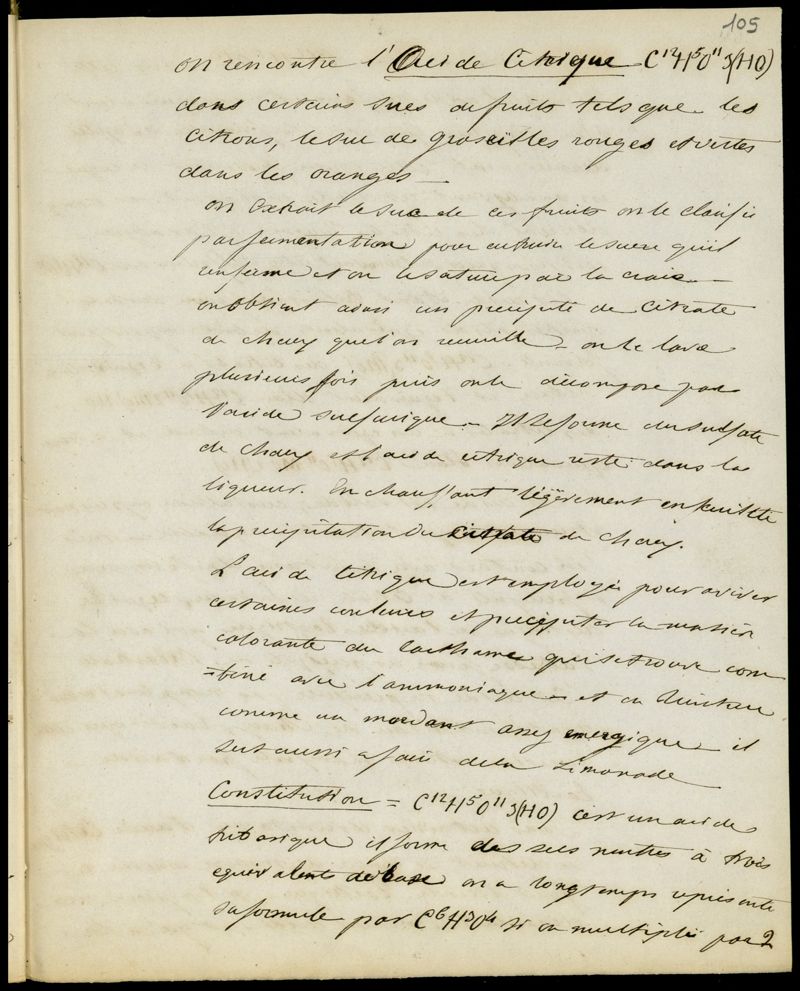 105
on rencontre l'Acide Citrique C¹²H⁵O¹¹ 3(HO)
dans certains sucs de fruits tels que les
citrons, le suc de groseilles rouges et vertes
dans les oranges —
on extrait le suc de ces fruits on le clarifie
par fermentation pour enlever le sucre qu'il
renferme et on le sature par la craie —
on obtient ainsi un precipité de Citrate
de chaux que l'on recueille — on le lave
plusieurs fois puis on le décompose par
l'acide sulfurique — Il se forme du sulfate
de chaux et l'acide citrique reste dans la
liqueur. En chauffant légèrement en facilite
la precipitation du citrate de chaux.
L'acide Citrique est employé pour aviver
certaines couleurs et precipiter la matière
colorante du carthame qui se trouve com
=biné avec l'ammoniaque — et en teinture
comme un mordant assez energique — il
sert aussi a faire de la Limonade
Constitution = C¹²H⁵O¹¹ 3(HO) c'est un acide
tribasique il forme des sels neutres à trois
equivalents de base on a longtemps représenté
sa formule par C⁶H³O⁴ si on multiplie par 2